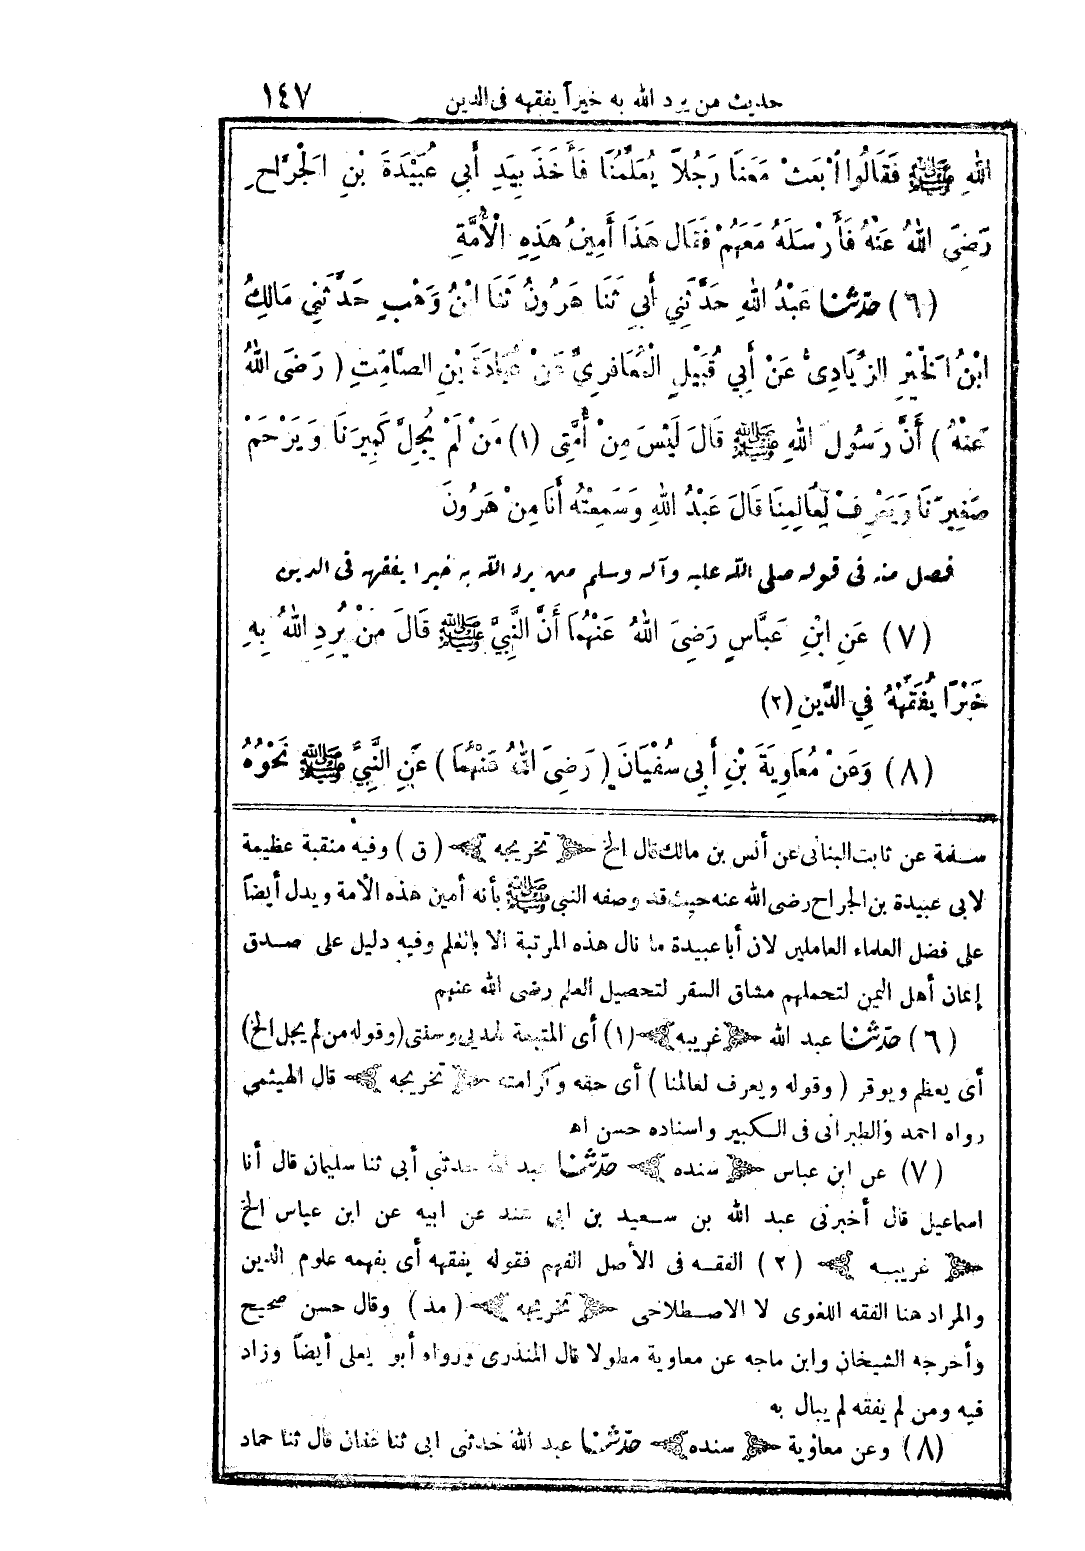 حديث من يرد الله به خيرا يفقهه فى الدين ١٤٧
اللهِ ﷺ فَقَالُوا ٱبْعَثْ مَعَنَا رَجُلاً يُعَلِّمُنَا فَأَخَذَ بِيَدِ أَبِي عُبَيْدَةَ بْنِ الْجَرَّاحِ
رَضِيَ اللهُ عَنْهُ فَأَرْسَلَهُ مَعَهُمْ فَقَالَ هَذَا أَمِينُ هَذِهِ الْأُمَّةِ
(٦) حدّثنا عَبْدُ اللهِ حَدَّثَنِي أَبِي ثَنَا هَرُونُ ثَنَا ابْنُ وَهْبٍ حَدَّثَنِي مَالِكُ
ابْنُ الْخَيْرِ الزِّيَادِىُّ عَنْ أَبِي قُبَيْلٍ الْمَعَافِرِيِّ عَنْ عُبَادَةَ بْنِ الصَّامِتِ (رَضَى اللهُ
عَنْهُ) أَنَّ رَسُولَ اللهِ ﷺ قَالَ لَيْسَ مِنْ أُمَّتِى (١) مَنْ لَمْ يُجِلَّ كَبِيرَنَا وَيَرْحَمْ
صَغِيرَنَا وَيَعْرِفْ لِعَالِمِنَا قَالَ عَبْدُ اللهِ وَسَمِعْتُهُ أَنَا مِنْ هَرُونَ
فصل منه فى قوله صلى الله عليه وآله وسلم من يرد الله به خيرا يفقهه فى الدين
(٧) عَنِ ابْنِ عَبَّاسٍ رَضِيَ اللهُ عَنْهُمَا أَنَّ النَّبِيَّ ﷺ قَالَ مَنْ يُرِدِ اللهُ بِهِ
خَيْرًا يُفَقِّهْهُ فِي الدِّينِ (٢)
(٨) وَعَنْ مُعَاوِيَةَ بْنِ أَبِى سُفْيَانَ (رَضِىَ اللهُ عَنْهُمَا) عَنِ النَّبِيِّ ﷺ نَحْوُهُ
سلمة عن ثابت البنانى عن أنس بن مالك قال الخ ﴿ تخريجه ﴾ (ق) وفيه منقبة عظيمة
لابى عبيدة بن الجراح رضى الله عنه حيث قد وصفه النبي ﷺ بأنه أمين هذه الأمة ويدل أيضاً
على فضل العلماء العاملين لان أبا عبيدة ما نال هذه المرتبة الا بالعلم وفيه دليل على صدق
إيمان أهل اليمن لتحملهم مشاق السفر لتحصيل العلم رضى الله عنهم
(٦) حدّثنا عبد الله ﴿غريبه﴾ (١) أى المتبعة لهديي وسنتى (وقوله من لم يجل الخ)
أى يعظم ويوقر (وقوله ويعرف لعالمنا) أى حقه وكرامته ﴿ تخريجه ﴾ قال الهيثمي
رواه احمد والطبرانى فى الكبير واسناده حسن اه
(٧) عن ابن عباس ﴿ سنده ﴾ حدّثنا عبد الله حدثني أبى ثنا سليمان قال أنا
اسماعيل قال أخبرنى عبد الله بن سعيد بن ابى هند عن ابيه عن ابن عباس الخ
﴿ غريبه ﴾ (٢) الفقه فى الأصل الفهم فقوله يفقهه أى يفهمه علوم الدين
والمراد هنا الفقه اللغوى لا الاصطلاحى ﴿ تخريجه ﴾ (مذ) وقال حسن صحيح
وأخرجه الشيخان وابن ماجه عن معاوية مطولا قال المنذرى ورواه أبو يعلى أيضاً وزاد
فيه ومن لم يفقه لم يبال به
(٨) وعن معاوية ﴿ سنده ﴾ حدّثنا عبد الله حدثني ابى ثنا عفان قال ثنا حماد